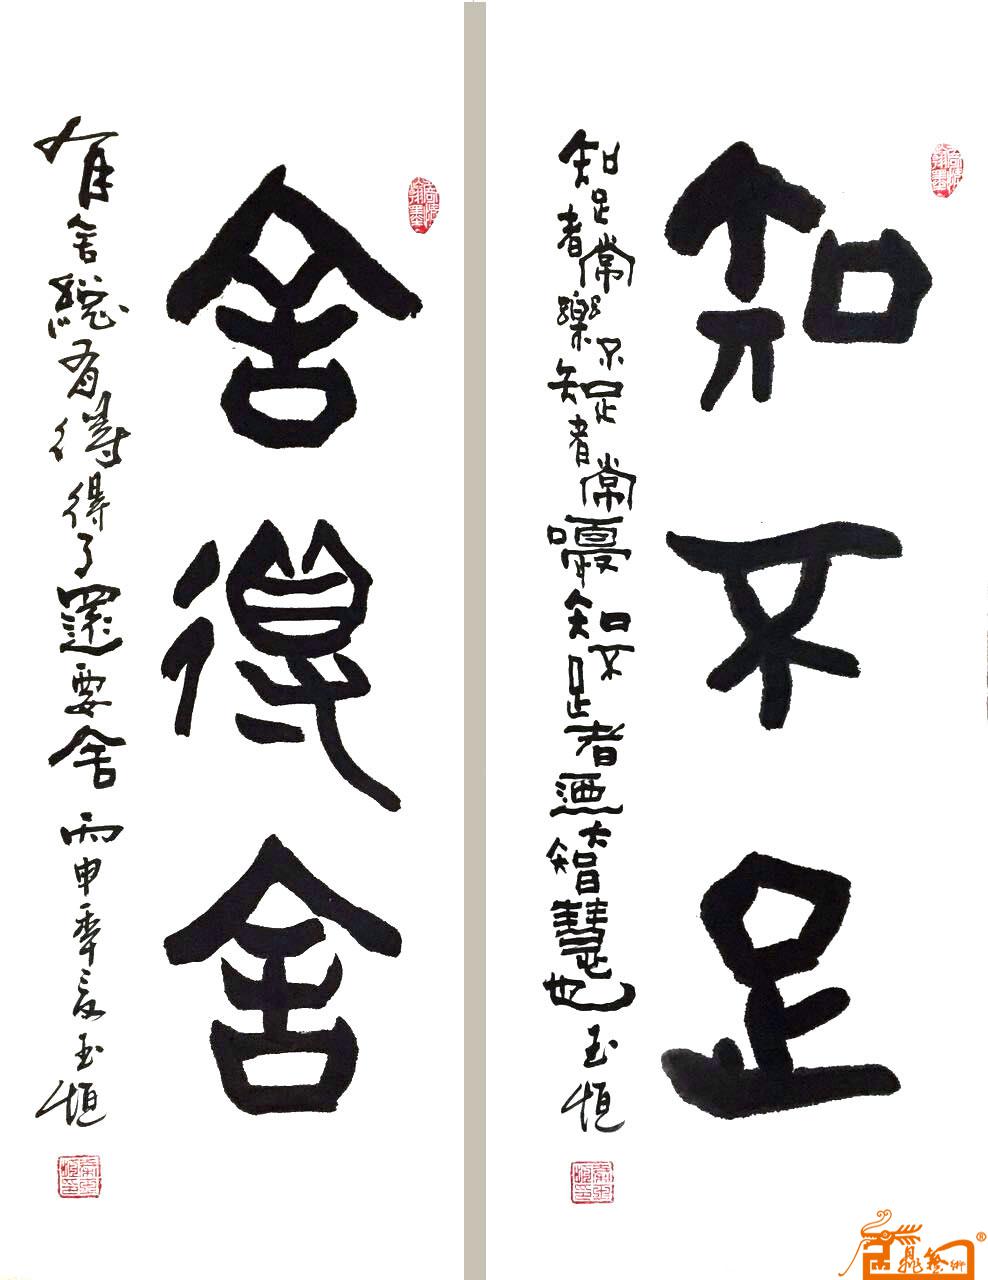 知不足
知足者常樂不知足者常嚘知不足者迺大智慧也 玉恒
舍得舍
有舍總有得得了還要舍 丙申季夏玉恒